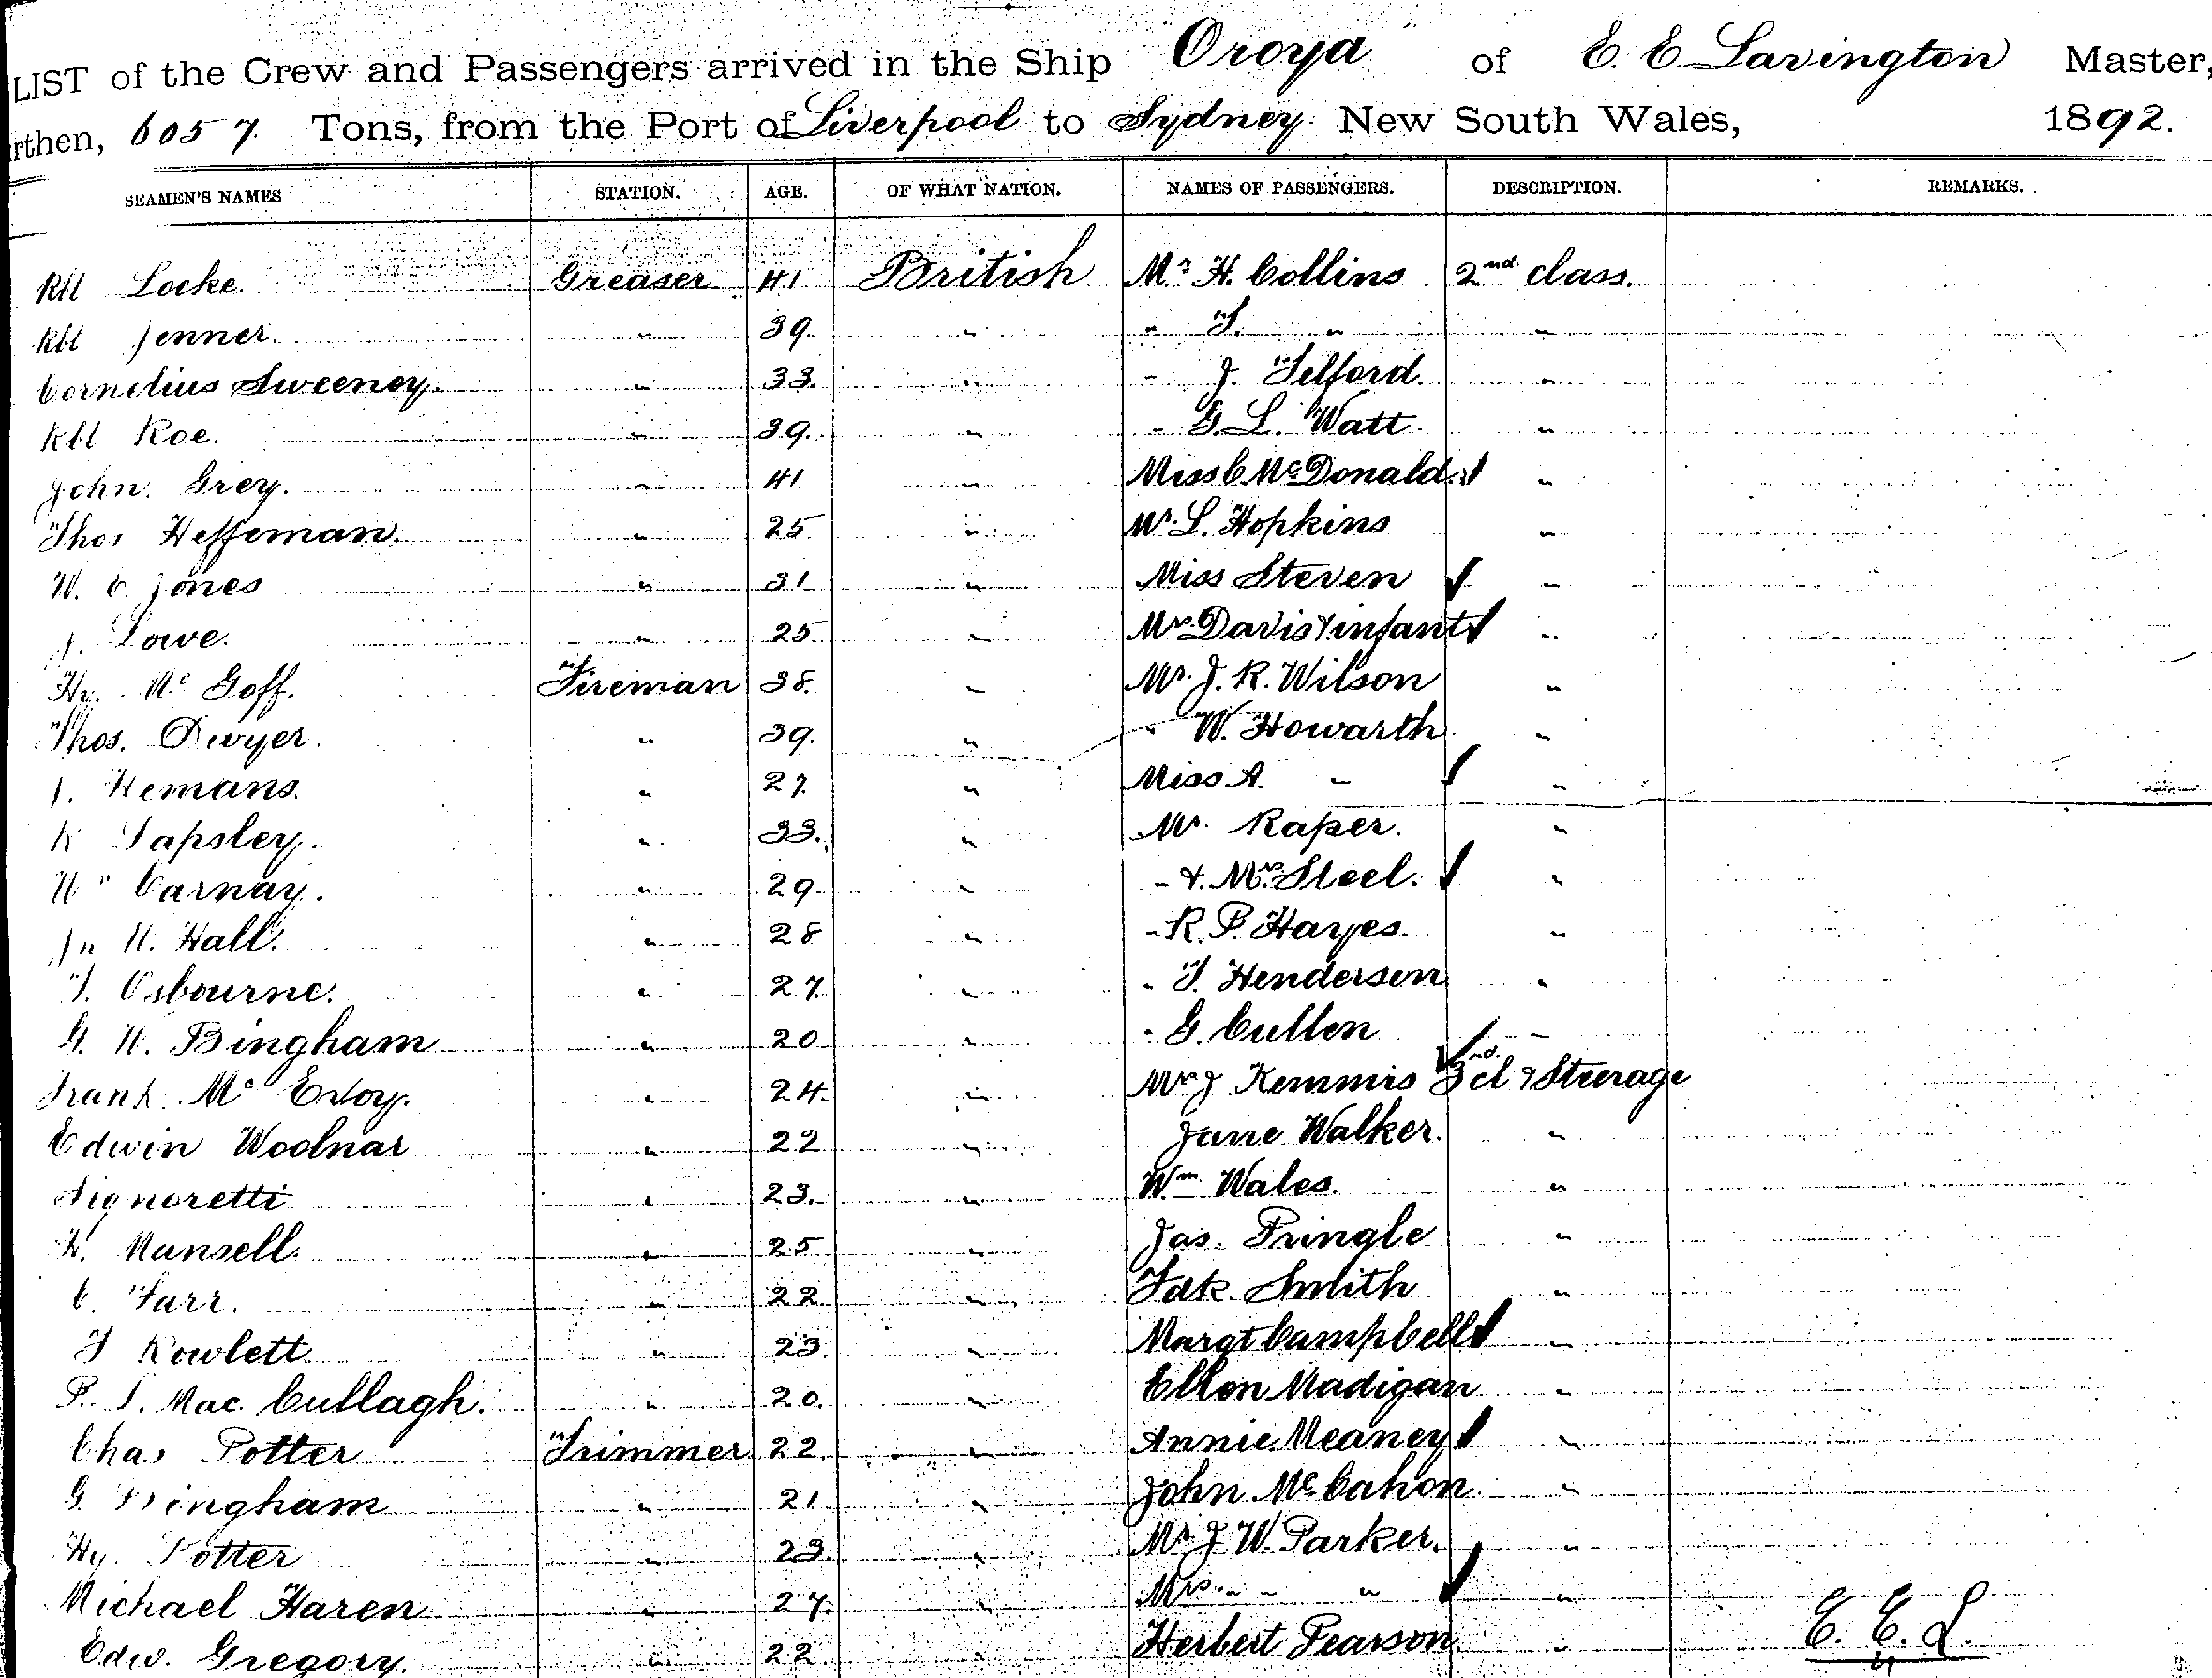 LIST of the Crew and Passengers arrived in the Ship Oroya of E. E. Lavington Master,
rthen, 6057. Tons, from the Port of Liverpool to Sydney New South Wales, 1892.
SEAMEN'S NAMES STATION. AGE. OF WHAT NATION. NAMES OF PASSENGERS. DESCRIPTION. REMARKS.
Rbt Locke. Greaser 41 British Mr H. Collins 2nd class.
Rbt Jenner. " 39. " " T. " "
Cornelius Sweeney. " 33. " " J. Telford. "
Rbt Roe. " 39. " " G. L. Watt "
John Grey. " 41 " Miss C McDonald. "
Thos Heffernan. " 25 " Mr. L. Hopkins "
W. E. Jones " 31 " Miss Steven "
J. Lowe. " 25 " Mrs. Davis & infant "
Hy. Mc Goff. Fireman 38. " Mr. J. R. Wilson "
Thos. Dwyer. " 39. " " W. Howarth "
Hemans. " 27. " Miss A. " "
Tapsley. " 33. " Mr. Raper. "
Carnay. " 29 " " & Mrs. Steel. "
Jn W. Hall. " 28 " " R. P. Hayes. "
T. Osbourne. " 27. " " T. Henderson "
G. W. Bingham " 20 " " G. Cullen "
Frank Mc Evoy. " 24. " Mr J Kemmis cl & Steerage
Edwin Woolnar " 22 " Jane Walker. "
Signoretti " 23. " Wm Wales. "
Mansell. " 25 " Jas. Pringle "
C. Farr. " 22 " Fdk Smith "
T Rowlett " 23. " Margt Campbell "
P. J. Mac Cullagh. " 20. " Ellen Madigan "
Chas Potter Trimmer 22. " Annie Meaney "
G Bingham " 21 " John Mc Cahon "
Hy. Potter " 23. " Mr J W. Parker. "
Michael Haren " 27. " Mrs " " " "
Edw. Gregory. " 22 " Herbert Pearson. " E. E. L.